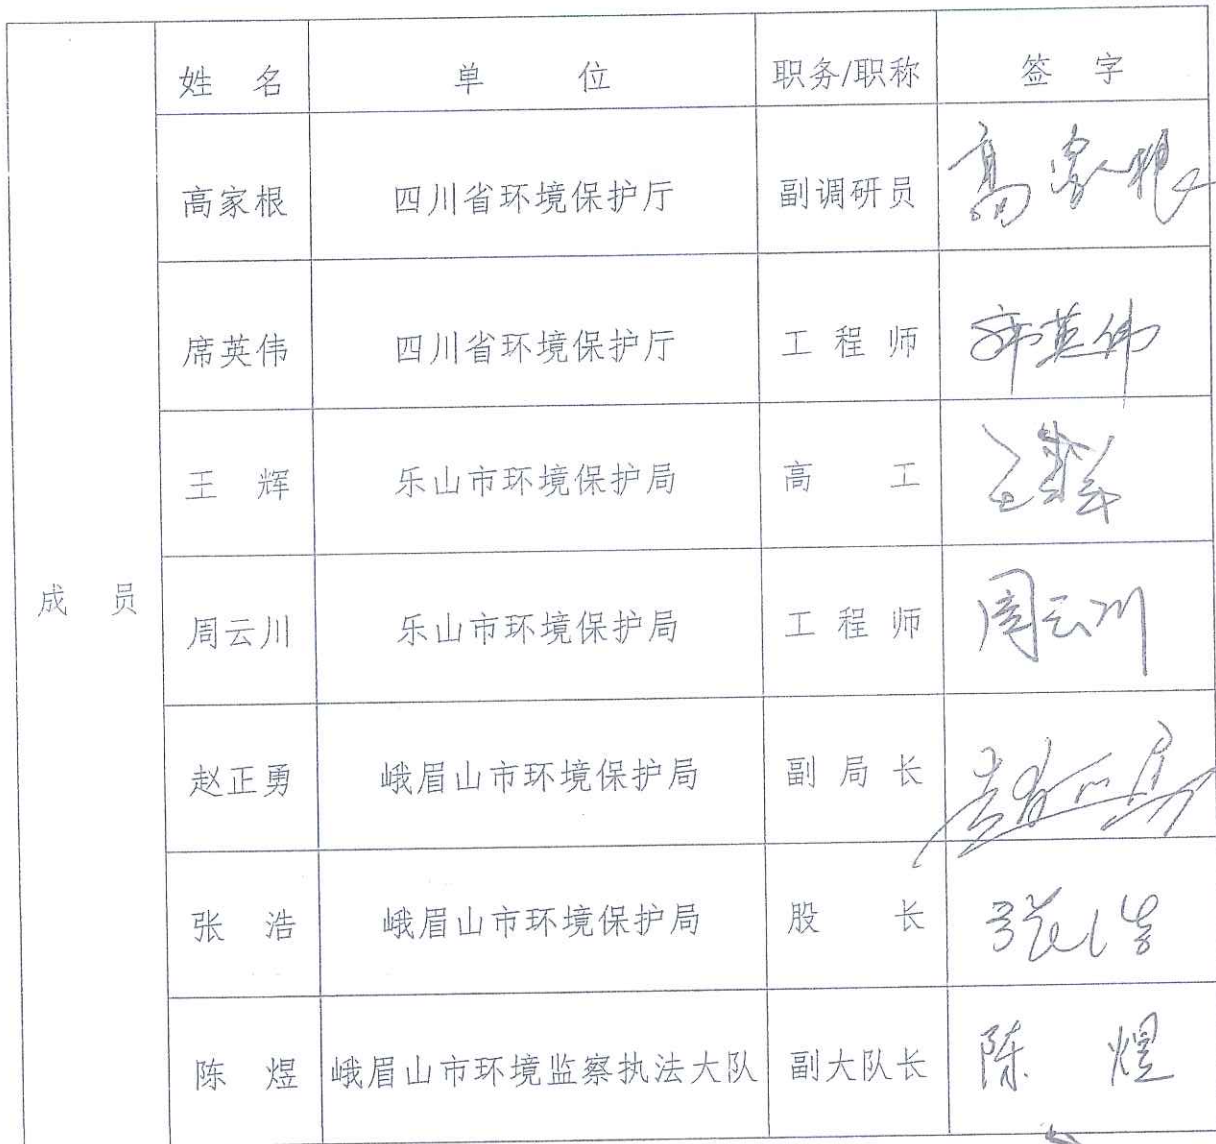 姓 名 单 位 职务/职称 签 字
高家根 四川省环境保护厅 副调研员 高家根
席英伟 四川省环境保护厅 工程师 席英伟
王 辉 乐山市环境保护局 高 工 王辉
成 员
周云川 乐山市环境保护局 工程师 周云川
赵正勇 峨眉山市环境保护局 副局长 赵正勇
张 浩 峨眉山市环境保护局 股 长 张浩
陈 煜 峨眉山市环境监察执法大队 副大队长 陈 煜